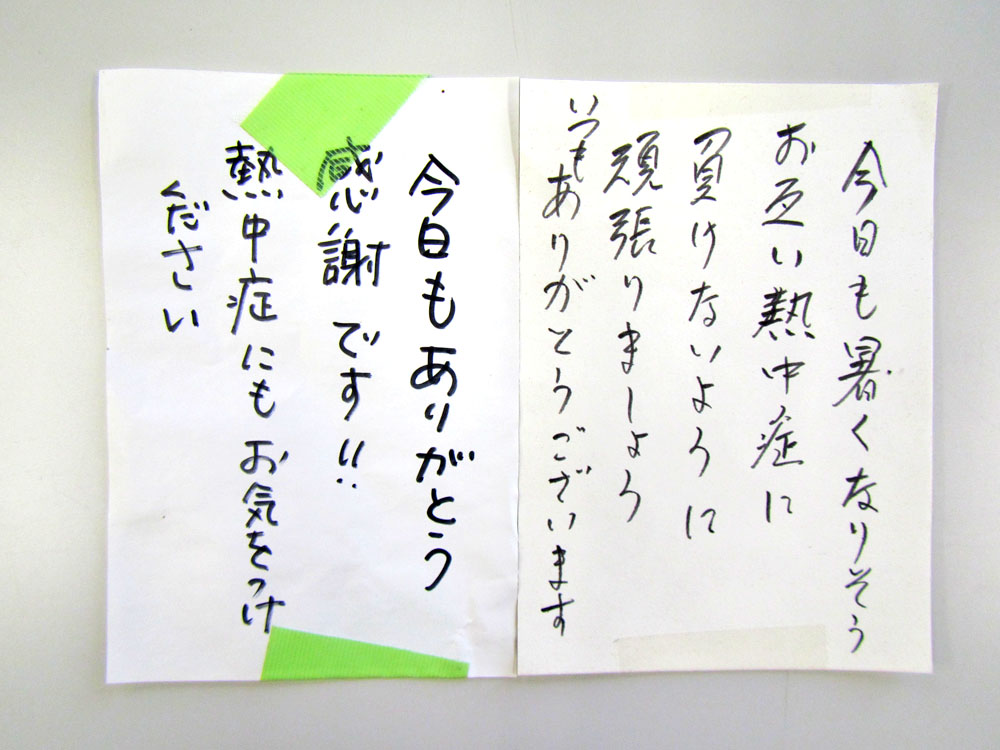 今日も暑くなりそう
お互い熱中症に
負けないように
頑張りましょう
いつもありがとうございます
今日もありがとう
感謝です!!
熱中症にもお気をつけ
ください